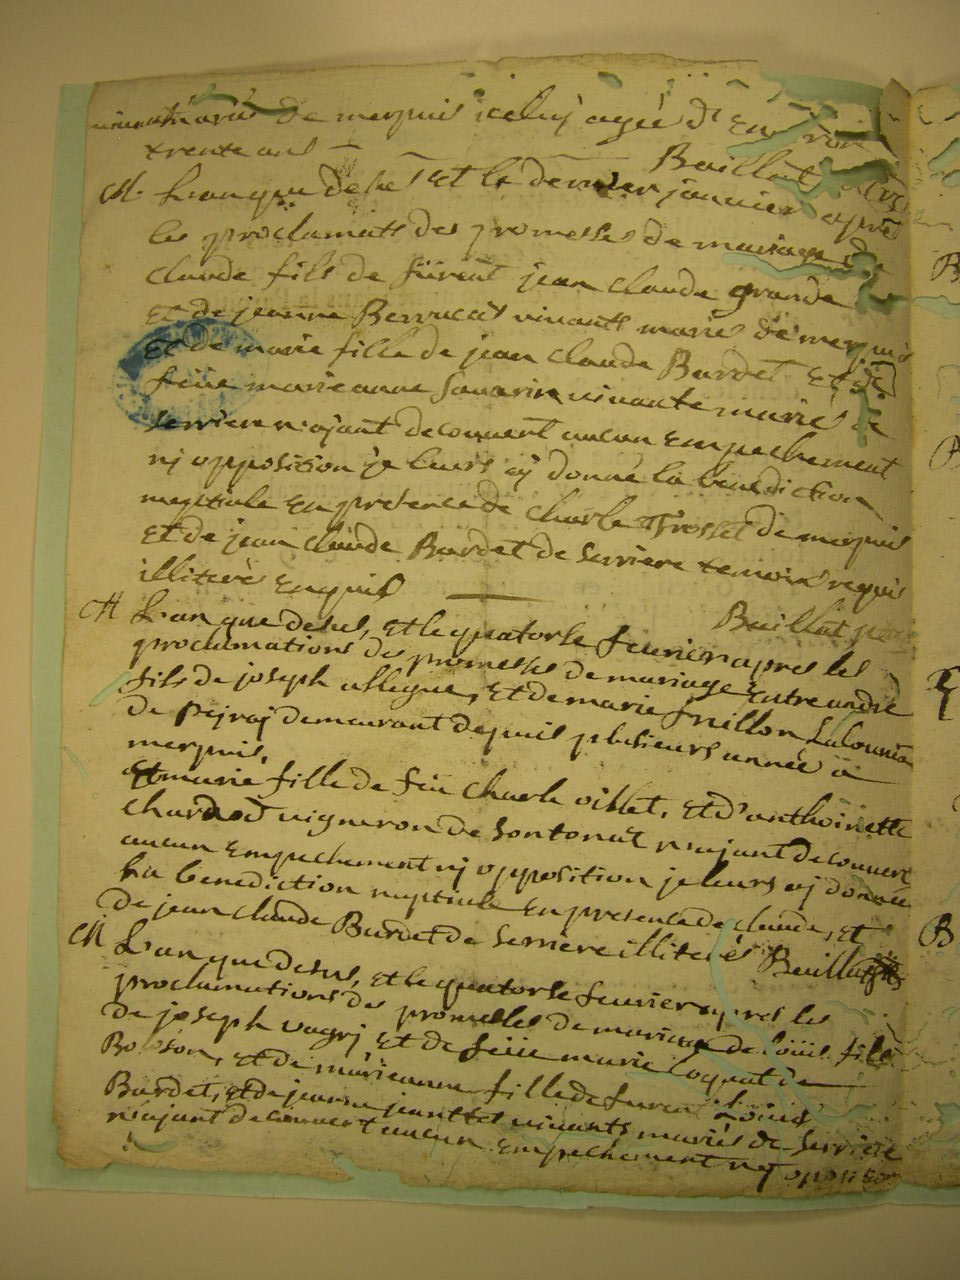 mariés de merpuis iceluy agée d'Environ
trente ans Baillat
M. L'an que dessus Et le dernier janvier après
les proclamats des promesses de mariage
claude fils de fürent jean claude grande
Et de jeanne Berrucat vivants mariés de merpuis
Et de marie fille de jean claude Burdet Et de
feüe marieanne Savarin vivante mariés de
Serriere n'ajant decouvert aucun Empechement
nj opposition je leurs aÿ donné la benediction
nuptiale En presence de charle Grosset de merpuis
Et de jean claude Burdet de Serriere temoins requis
illiterés Enquis
Baillat
M L'an que dessus, Et le quatorse feuvrier apres les
proclamations des promesses de mariage Entre andré
fils de joseph allegue, Et de marie Labouriau
de Pejraj demeurant depuis plusieurs année à
merpuis,
Et marie fille de feu charle oillet, Et d'anthoinette
Chardod vigneron de Sontonat n'ajant decouvert
aucun Empechement nj opposition je leurs aj donnée
La benediction nuptiale En presence de claude, Et
de jean claude Burdet de Serriere illiterés Baillat
M L'an que dessus, Et le quatorse feuvrier apres les
proclamations des promesses de mariage de loüis fils
de joseph vagrj Et de feüe marie Coquat de
Boloson, Et de marieanne fille de furent Loüis
Burdet, Et de jeanne jeanttet vivants mariés de Serriere
n'ajant decouvert aucun Empechement nj oposition